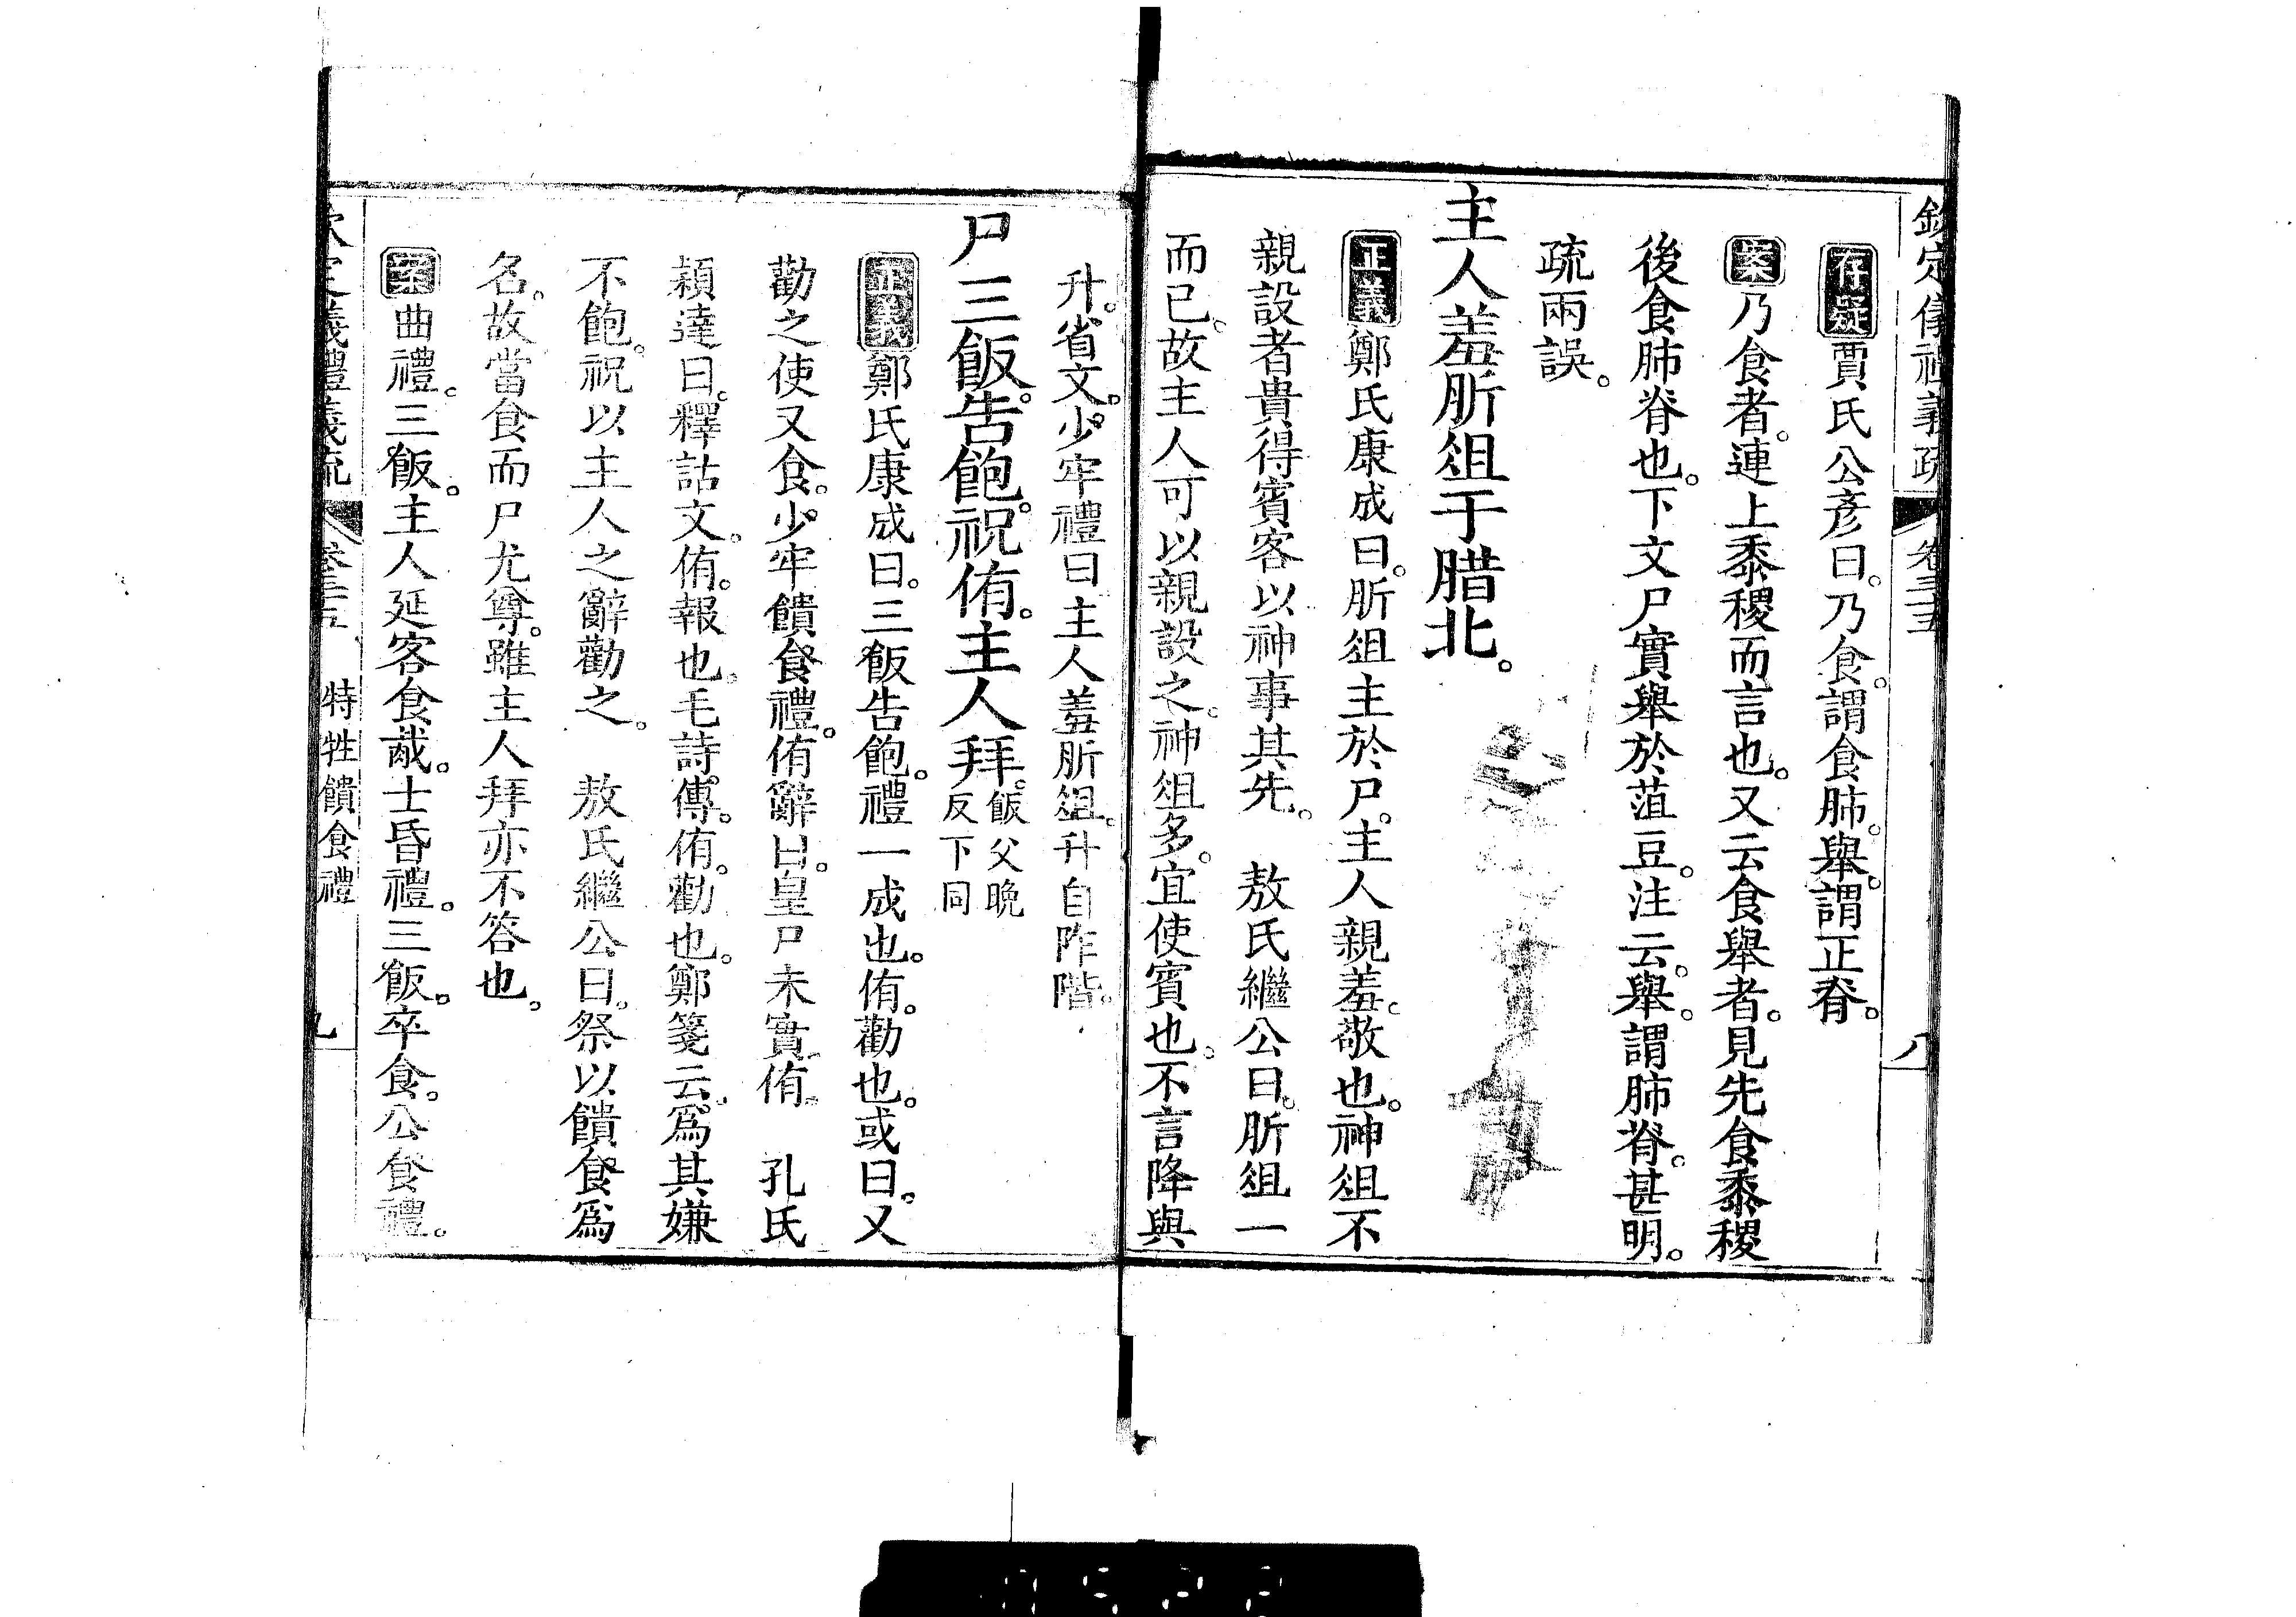 欽定儀禮義疏 卷三十五 八
存疑賈氏公彥曰。乃食。謂食肺。舉。謂正脊。
案乃食者。連上黍稷而言也。又云食舉者。見先食黍稷
後食肺脊也。下文尸實舉於菹豆。注云。舉。謂肺脊。甚明。
疏兩誤。
主人羞肵俎于腊北。
正義鄭氏康成曰。肵俎主於尸。主人親羞。敬也。神俎不
親設者。貴得賓客以神事其先。 敖氏繼公曰。肵俎一
而已。故主人可以親設之。神俎多。宜使賓也。不言降與
升。省文。少牢禮曰。主人羞肵俎。升自阼階。
尸三飯。告飽。祝侑。主人拜。飯父晚
反下同
正義鄭氏康成曰。三飯告飽。禮一成也。侑。勸也。或曰。又
勸之使又食。少牢饋食禮。侑辭曰。皇尸未實侑。 孔氏
穎達曰。釋詁文。侑。報也。毛詩傳。侑。勸也。鄭箋云。爲其嫌
不飽。祝以主人之辭勸之。 敖氏繼公曰。祭以饋食爲
名。故當食而尸尤尊。雖主人拜亦不答也。
案曲禮。三飯。主人延客食胾。士昏禮。三飯。卒食。公食禮。
欽定儀禮義疏 卷三十五 特牲饋食禮 九